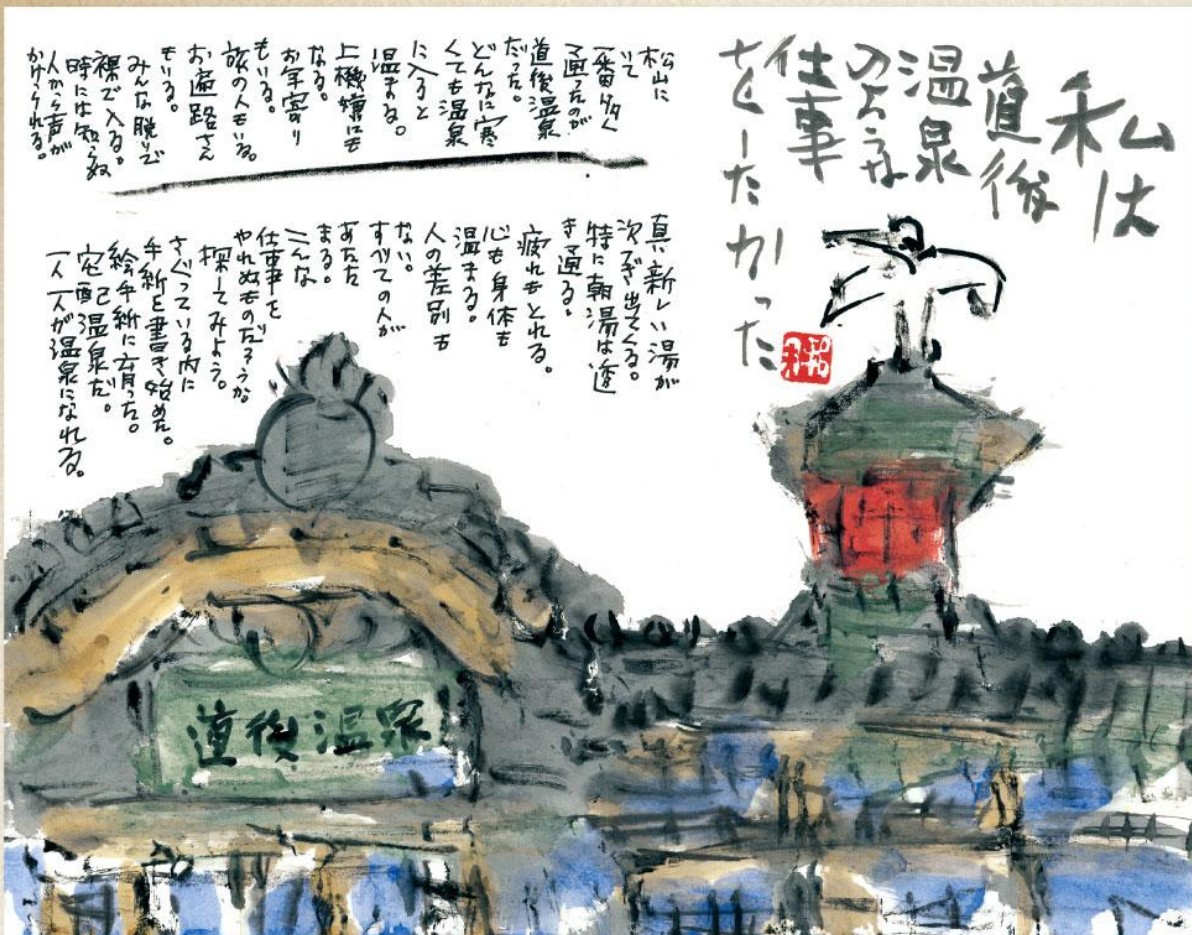 私は
道後
温泉
のような
仕事
をしたかった
松山に
いて
一番多く
通ったのが
道後温泉
だった。
どんなに寒
くても温泉
に入ると
温まる。
上機嫌にも
なる。
お年寄り
もいる。
旅の人もいる。
お遍路さん
もいる。
みんな脱いで
裸で入る。
時には知らぬ
人から声が
かけられる。
真新しい湯が
次つぎ出てくる。
特に朝湯は透
き通る。
疲れもとれる。
心も身体も
温まる。
人の差別も
ない。
すべての人が
あたた
まる。
こんな
仕事を
やれぬものだろうか
探してみよう。
さぐっている内に
手紙を書き始めた。
絵手紙に育った。
宅配温泉だ。
一人一人が温泉になれる。
道後温泉